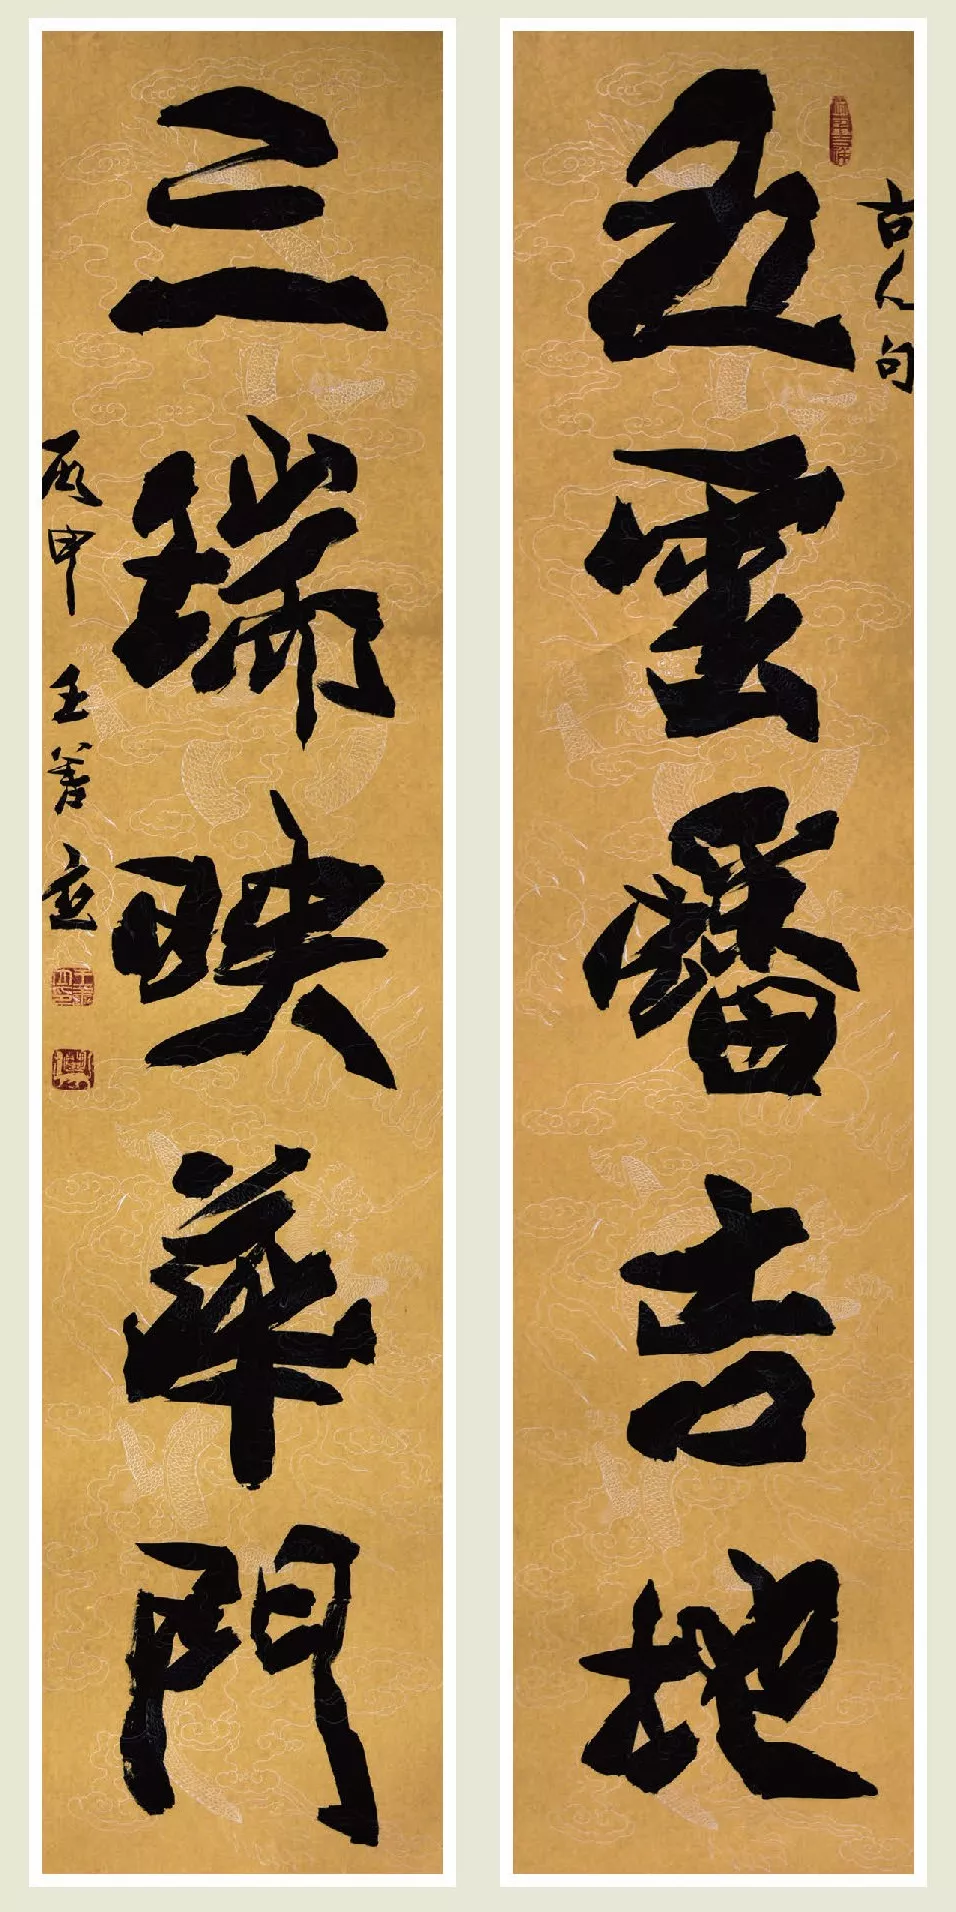 五雲蟠吉地
古人句
三瑞映華門
丙申 王善